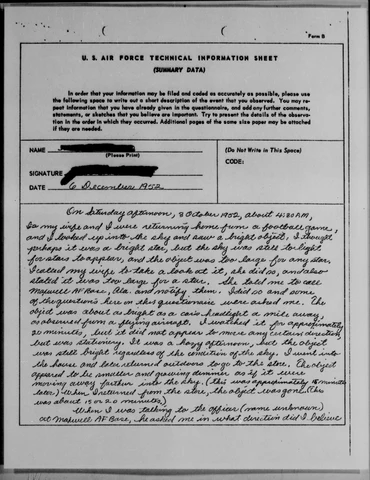 Form B
U. S. AIR FORCE TECHNICAL INFORMATION SHEET
(SUMMARY DATA)
In order that your information may be filed and coded as accurately as possible, please use
the following space to write out a short description of the event that you observed. You may re-
peat information that you have already given in the questionnaire, and add any further comments,
statements, or sketches that you believe are important. Try to present the details of the observa-
tion in the order in which they occurred. Additional pages of the same size paper may be attached
if they are needed.
NAME
(Please Print)
(Do Not Write in This Space)
CODE:
SIGNATURE
DATE 6 December 1952
On Saturday afternoon, 8 October 1952, about 4:30 P.M.,
as my wife and I were returning home from a football game,
and I looked up into the sky and saw a bright object; I thought
perhaps it was a bright star, but the sky was still to light
for stars to appear, and the object was too large for any star.
I called my wife to take a look at it, she did so, and also
stated it was too large for a star. She told me to call
Maxwell AF Base, Ala. and notify them. I did so and some
of the questions here on this questionaire were asked me. The
object was about as bright as a car's headlight a mile away,
as observed from a flying aircraft. I watched it for approximately
20 minutes, but it did not appear to move any certain direction,
but was stationery. It was a hazy afternoon, but the object
was still bright regardless of the condition of the sky. I went into
the house and later returned outdoors to go to the store. The object
appeared to be smaller and growing dimmer as if it were
moving away farther into the sky. (This was approximately 15 minutes
later.) When I returned from the store, the object was gone. (This
was about 15 or 20 minutes.)
When I was talking to the officer (name unknown)
at Maxwell AF Base, he asked me in what direction did I believe